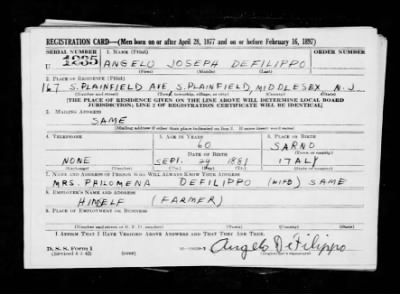 REGISTRATION CARD—(Men born on or after April 28, 1877 and on or before February 16, 1897)
SERIAL NUMBER 1. NAME (Print) ORDER NUMBER
U 1235 ANGELO JOSEPH DEFILIPPO
(First) (Middle) (Last)
2. PLACE OF RESIDENCE (Print)
167 S. PLAINFIELD AVE S. PLAINFIELD, MIDDLESEX N. J.
(Number and street) (Town, township, village, or city) (County) (State)
[THE PLACE OF RESIDENCE GIVEN ON THE LINE ABOVE WILL DETERMINE LOCAL BOARD
JURISDICTION; LINE 2 OF REGISTRATION CERTIFICATE WILL BE IDENTICAL]
3. MAILING ADDRESS
SAME
[Mailing address if other than place indicated on line 2. If same insert word same]
4. TELEPHONE 5. AGE IN YEARS 6. PLACE OF BIRTH
60 SARNO
DATE OF BIRTH (Town or county)
NONE SEPT. 29 1881 ITALY
(Exchange) (Number) (Mo.) (Day) (Yr.) (State or country)
7. NAME AND ADDRESS OF PERSON WHO WILL ALWAYS KNOW YOUR ADDRESS
MRS. PHILOMENA DEFILIPPO (WIFE) SAME
8. EMPLOYER'S NAME AND ADDRESS
HIMSELF (FARMER)
9. PLACE OF EMPLOYMENT OR BUSINESS
(Number and street or R. F. D. number) (Town) (County) (State)
I AFFIRM THAT I HAVE VERIFIED ABOVE ANSWERS AND THAT THEY ARE TRUE.
D. S. S. Form 1 Angelo DeFilippo
(Registrant's signature)